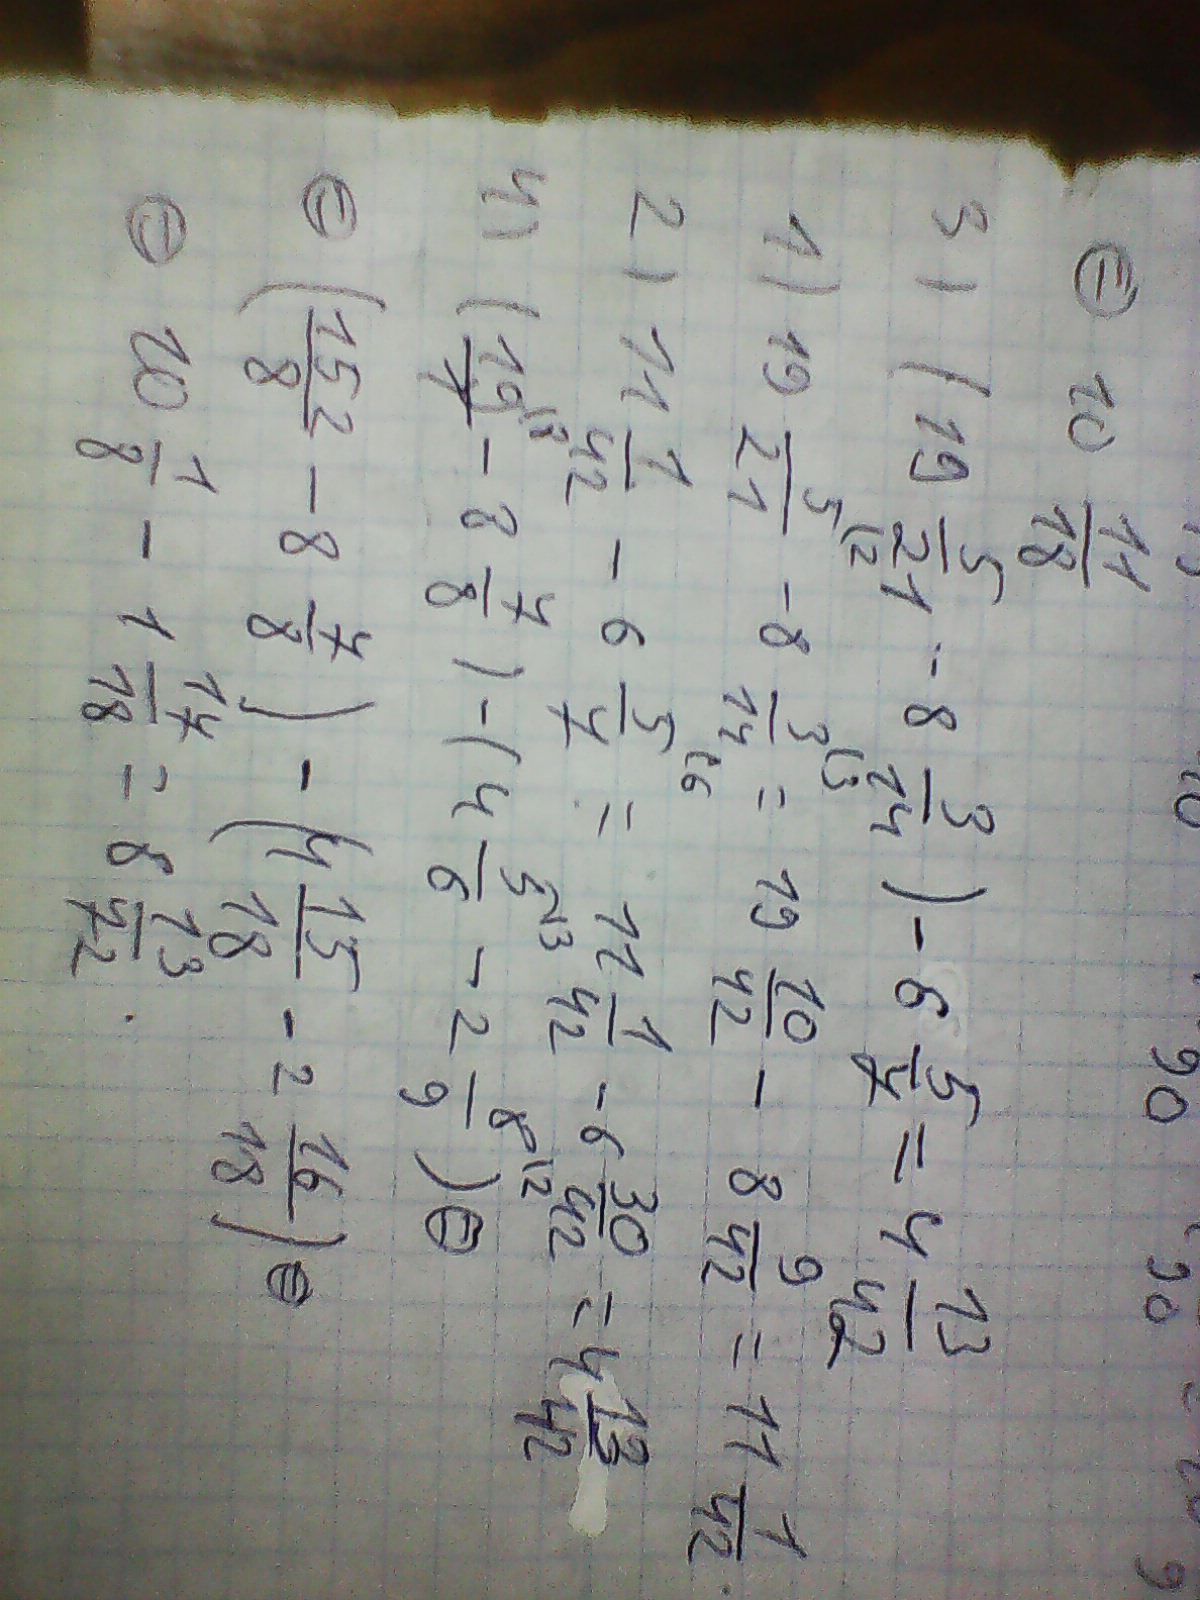 ⊖ 10 11/18
3) (19 5/21 - 8 3/14) - 6 5/7 = 4 13/42
1) 19 5/21 - 8 3/14 = 19 10/42 - 8 9/42 = 11 1/42
2) 11 1/42 - 6 5/7 = 11 1/42 - 6 30/42 = 4 13/42
4) (19 - 8 7/8) - (4 5/6 - 2 8/9) ⊖
⊖ (152/8 - 8 7/8) - (4 15/18 - 2 16/18) ⊖
⊖ 10 1/8 - 1 17/18 = 8 13/72.